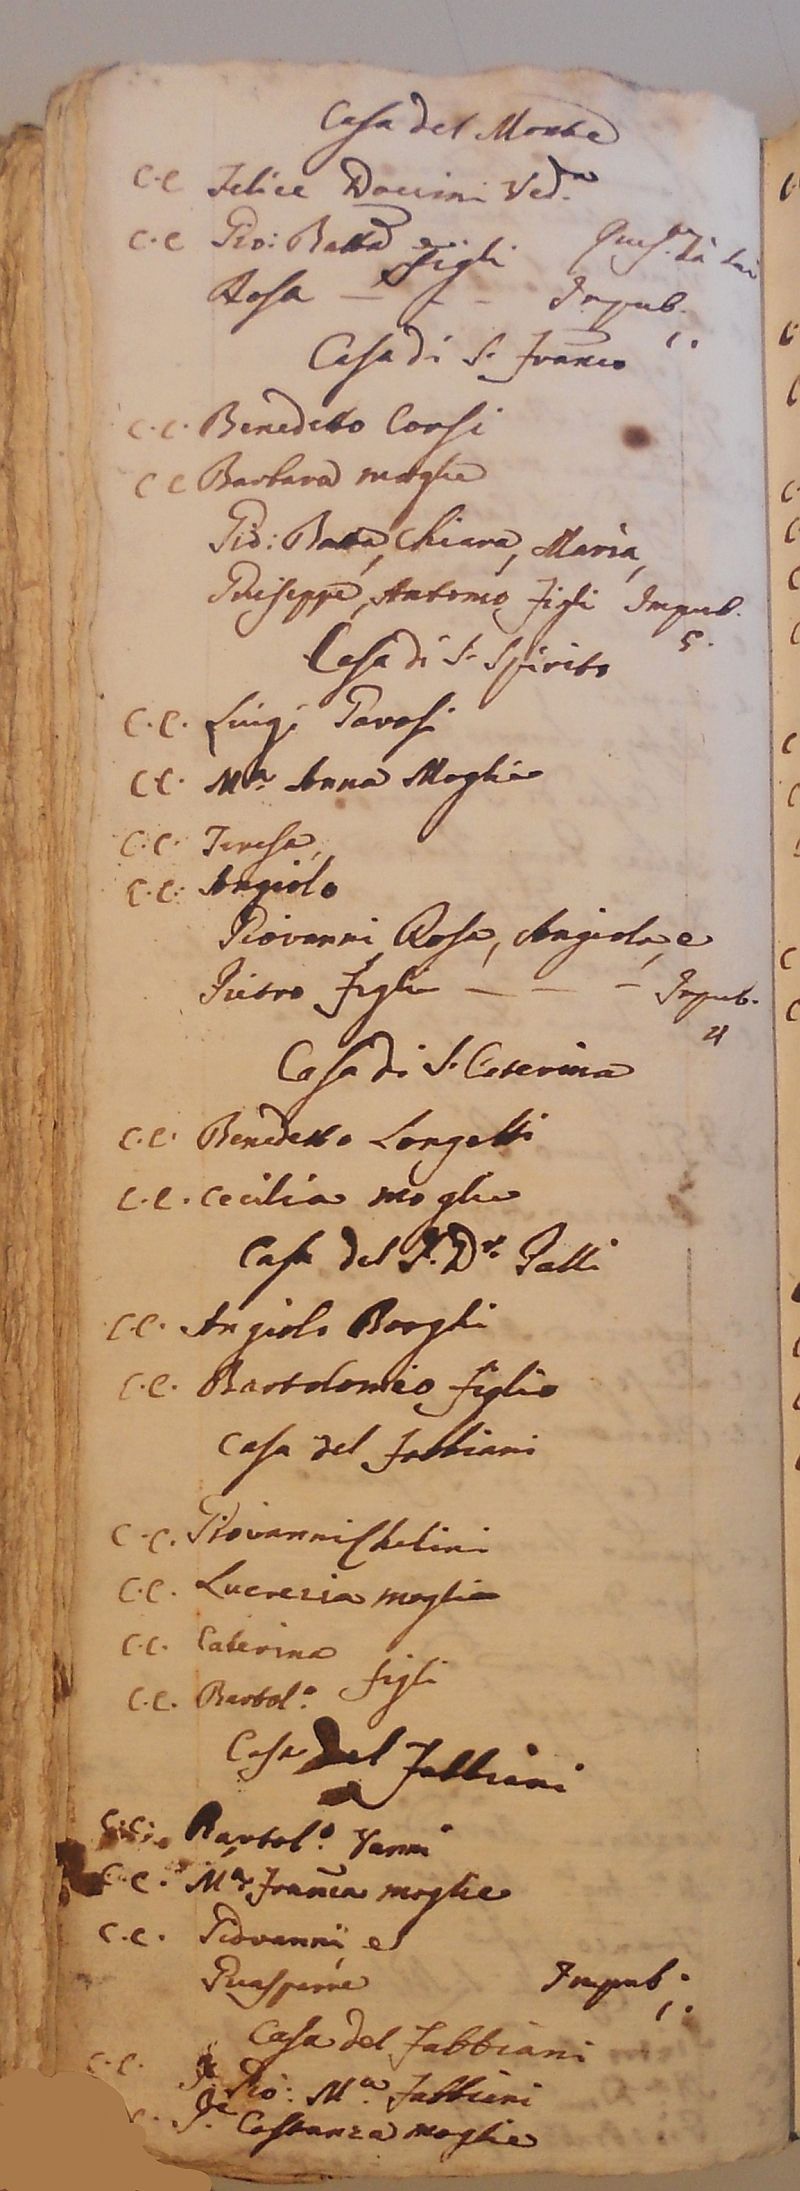 Casa del Monte
C.C Felice Doccini Ved.a
C.C Gio: Batta e figli
Rosa — — — Impub.
1.
Casa di S. Franco
C.C. Benedetto Corsi
C C Barbara moglie
Gio: Batta, Chiara, Maria,
Giuseppe, Antonio figli Impub.
5.
Casa di S. Spirito
C.C. Luigi Pavosi
C C. Ma. Anna Moglie
C.C Teresa,
C.C. Angiolo
Giovanni, Rosa, Angiola, e
Pietro figli — — — Impub.
4
Casa di S. Caterina
C.C. Benedetto Longetti
C.C. Cecilia moglie
Casa del S. Dr. Galli
C.C. Angiolo Borghi
C.C. Bartolomeo figlio
Casa del Fabbiani
C.C. Giovanni Chelini
C.C. Lucrezia moglie
C.C. Caterina
figli
C.C. Bartol.o
Casa del Fabbiani
C.C. Bartol.o Vanni
C.C. Ma. Franca moglie
C.C. Giovanni e
Gasperre Impub.
1.
Casa del Fabbiani
C.C. Gio: Ma. Fabbieni
C. Costanza moglie